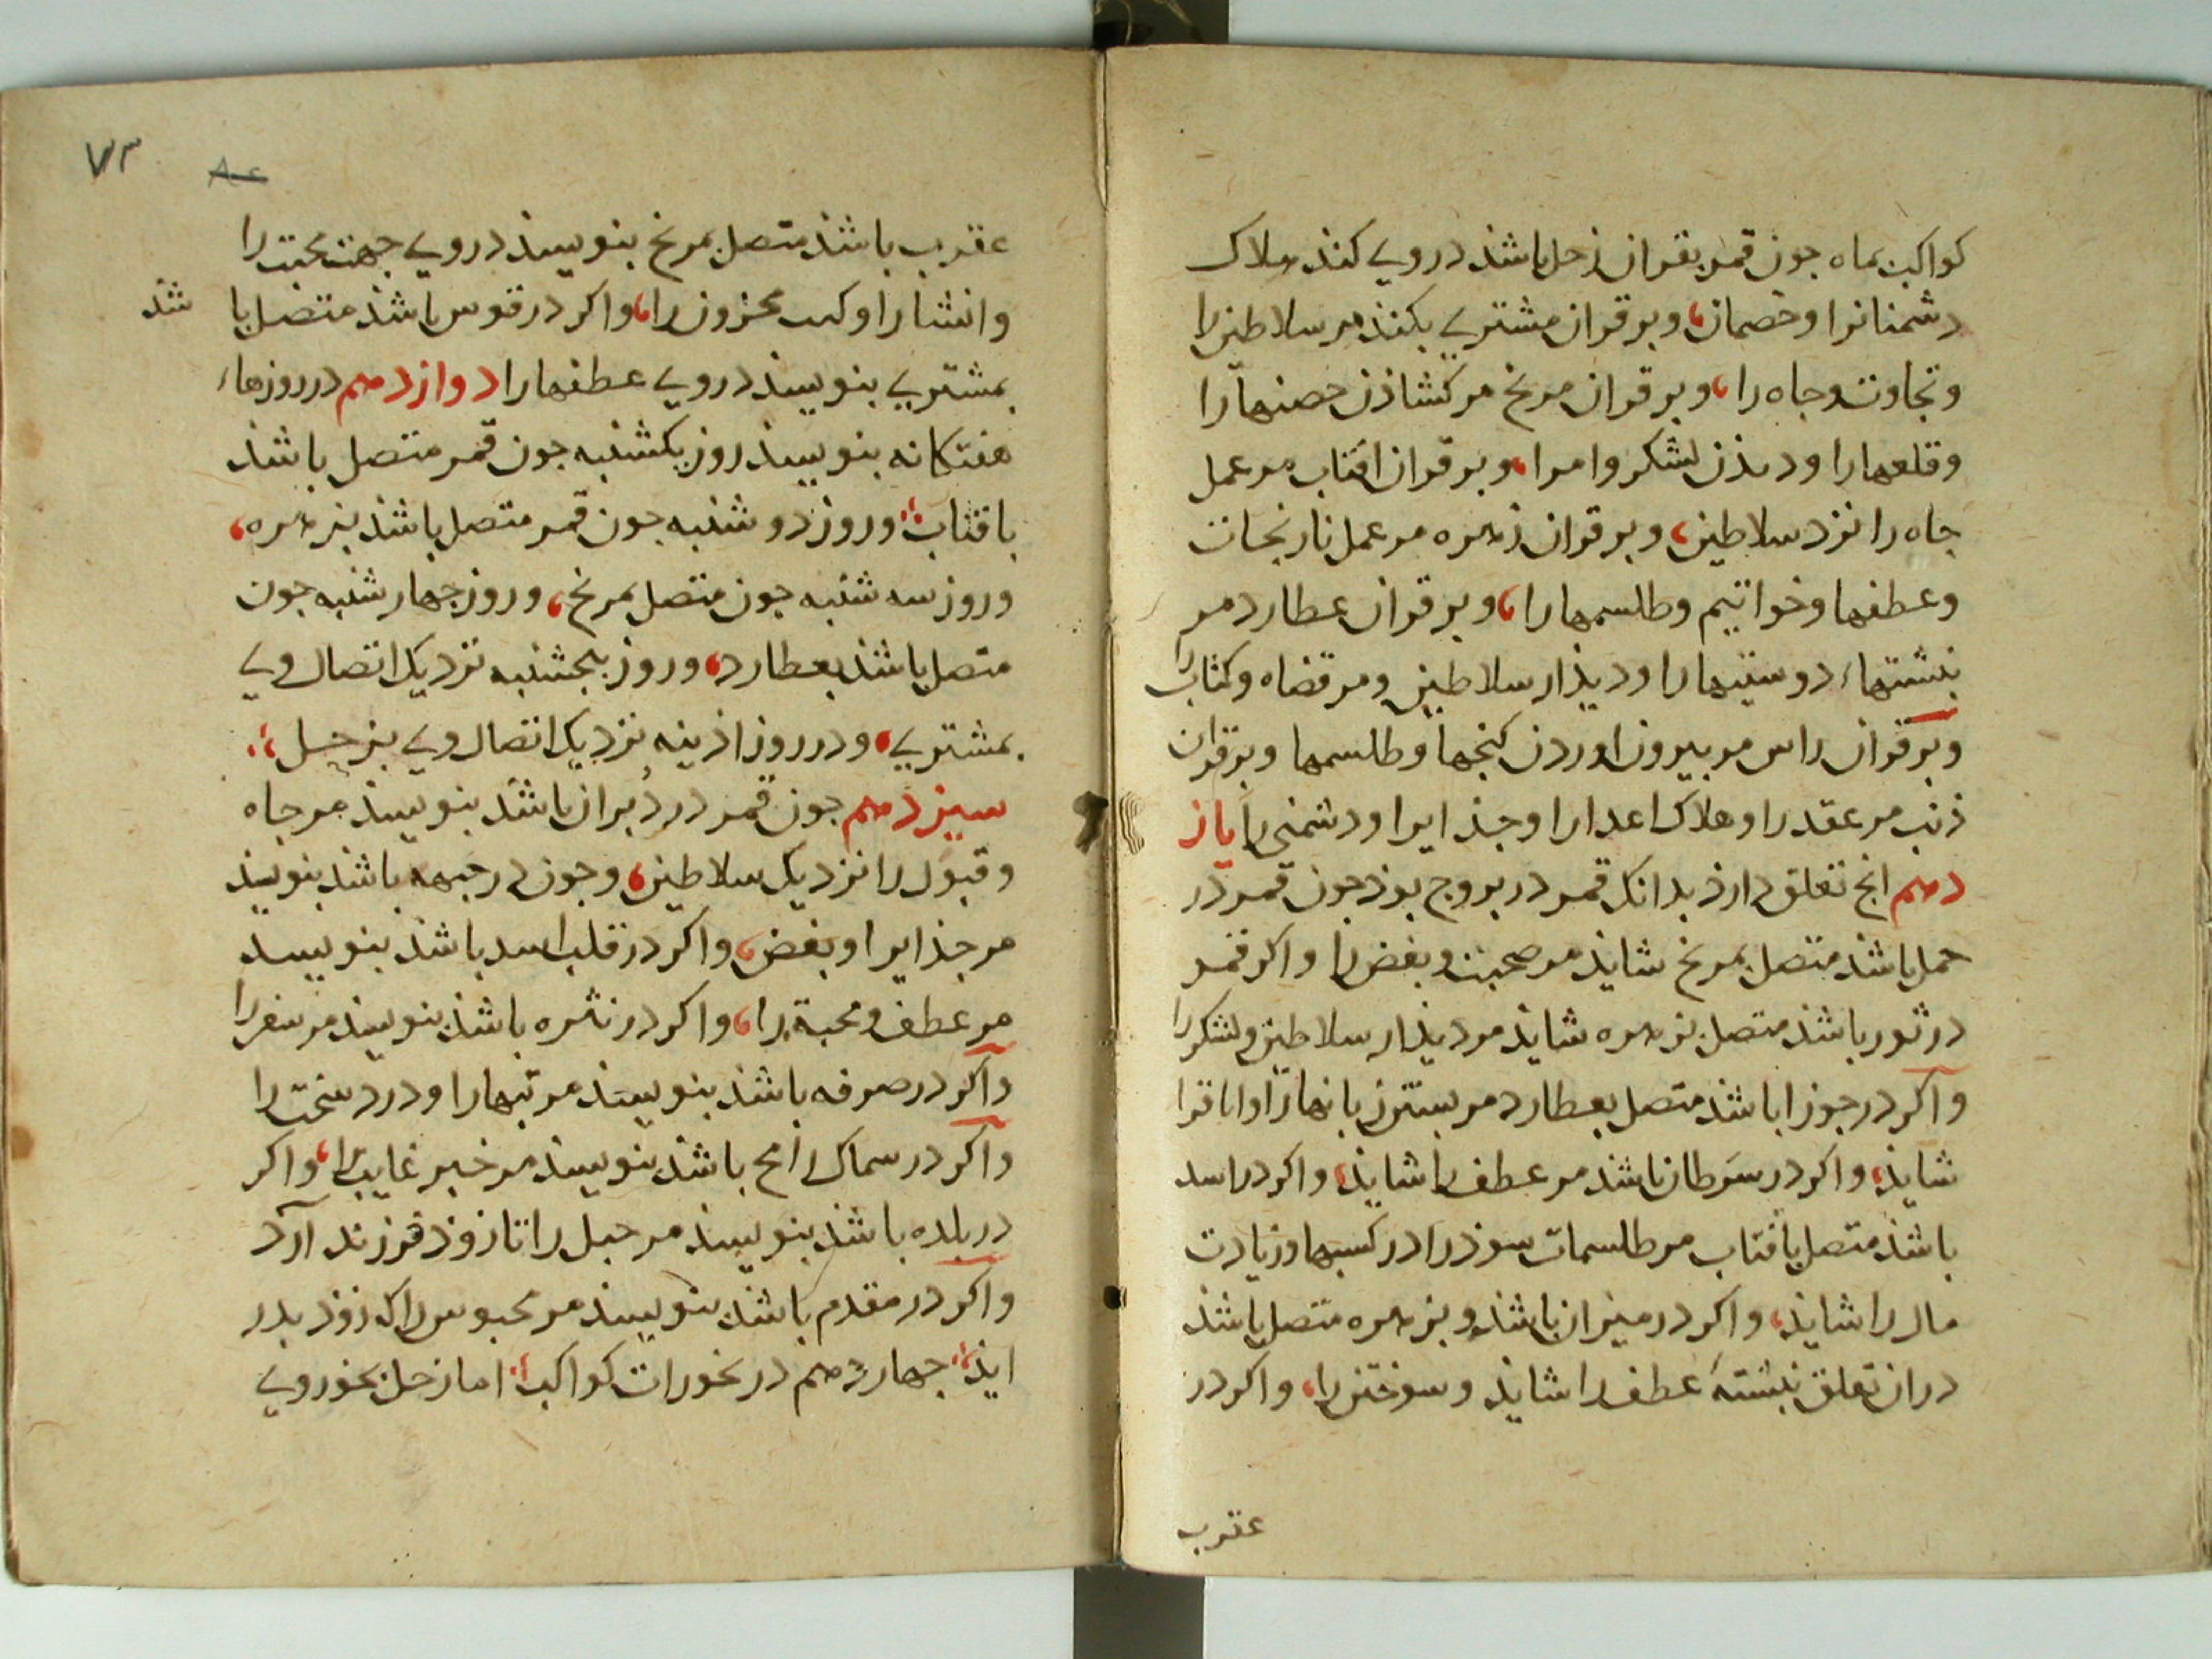 كواكب بماه جون قمر بقران زحل باشذ در وي كنذ هلاك
دشمنانرا وخصمان، وبر قران مشتري بكنذ مر سلاطين را
وتجاوت وجاه را، وبر قران مريخ مر كشاذن حصنها را
وقلعها را ودیذن لشكر وامرا، وبر قران افتاب مر عمل
جاه را نزد سلاطين، وبر قران زهره مر عمل نارنجات
وعطفها وخواتيم وطلسمها را، وبر قران عطارد مر
نبشتهاء دوستيها را وديذار سلاطين ومر قضاه وكتاب را
وبر قران راس مر بيرون اوردن كنجها وطلسمها وبر قران
ذنب مر عقد را وهلاك اعدا را وجذايرا ودشمنى را ياز
دهم انج تعلق دارذ بدانك قمر در بروج بوذ جون قمر در
حمل باشذ متصل بمريخ شايذ مر صحبت وبغض را واكر قمر
در ثور باشذ متصل بزهره شايذ مر ديذار سلاطين ولشكر را
واكر در جوزا باشذ متصل بعطارد مر بستن زبانها را
شايذ، واكر در سرطان باشذ مر عطف را شايذ، واكر در اسد
باشذ متصل بافتاب مر طلسمات سوذ را در كسبها وزيادت
مال را شايذ، واكر در ميزان باشذ وبزهره متصل باشذ
در ان تعلق نبشتۀ عطف را شايذ وسوختن را، واكر در
عقرب
۷۳
عقرب باشذ متصل بمريخ بنويسند در وي جهت محبت را
وانشا را وكب محزون را، واكر در قوس باشذ متصل با شذ
بمشتري بنويسند در وي عطفها را دوازدهم در روزهاء
هفتكانه بنويسند روز يكشنبه جون قمر متصل باشذ
بافتاب وروز دوشنبه جون قمر متصل باشذ بزهره،
وروز سه شنبه جون متصل بمريخ، وروز جهار شنبه جون
متصل باشذ بعطارد، وروز بنجشنبه نزديك اتصال وي
بمشتري، ودر روز اذينه نزديك اتصال وي بزحل
سيزدهم جون قمر در دبران باشذ بنويسند مر جاه
وقبول را نزديك سلاطين، وجون در جبهه باشذ بنويسند
مر جذايرا وبغض، واكر در قلب اسد باشذ بنويسند
مر عطف ومحبة را، واكر در نثره باشذ بنويسند مر سفر را
واكر در صرفه باشذ بنويسند مر تبها را ودرد سخت را
واكر در سماك رامح باشذ بنويسند مر خبر غايب را، واكر
در بلده باشذ بنويسند مر حبل را تا زوذ فرزند آرد
واكر در مقدم باشذ بنويسند مر محبوس را ك زوذ بدر
ايذ جهاردهم در بخورات كواكب اما زحل بخور وي